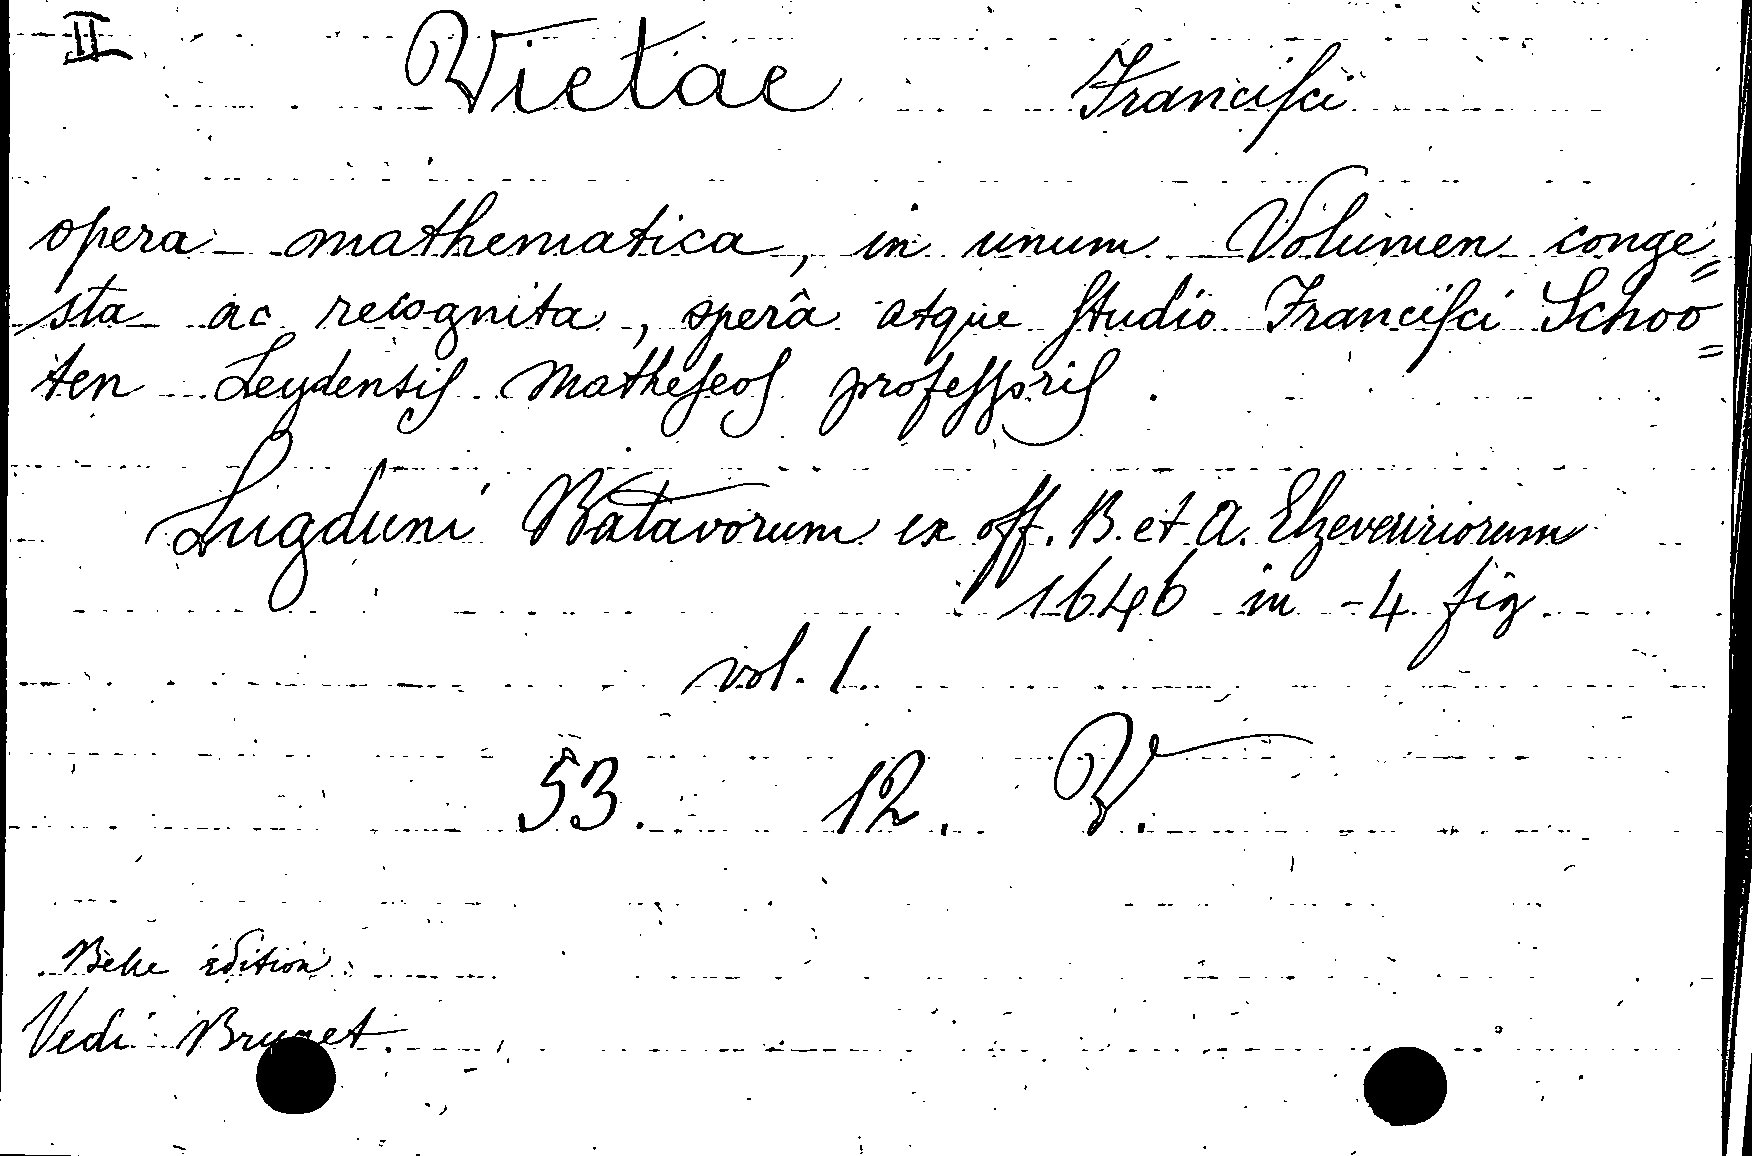 II
Vietae Francisci
opera mathematica, in unum Volumen conge=
sta ac recognita, operâ atque studio Francisci Schoo=
ten Leydensis Matheseos professoris.
Lugduni Batavorum ex off. B. et A. Elzeveriorum
1646 in-4 fig
vol. 1.
53. 12. V.
Belle édition
Vedi Brunet.